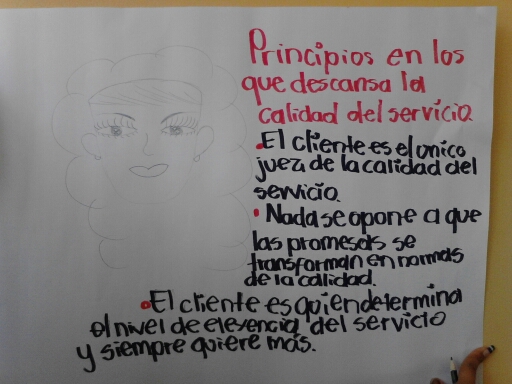 Principios en los
que descansa la
calidad del servicio
El cliente es el unico
juez de la calidad del
servicio.
Nada se opone a que
las promesas se
transforman en normas
de la calidad.
El cliente es quien determina
el nivel de elesencia del servicio
y siempre quiere más.